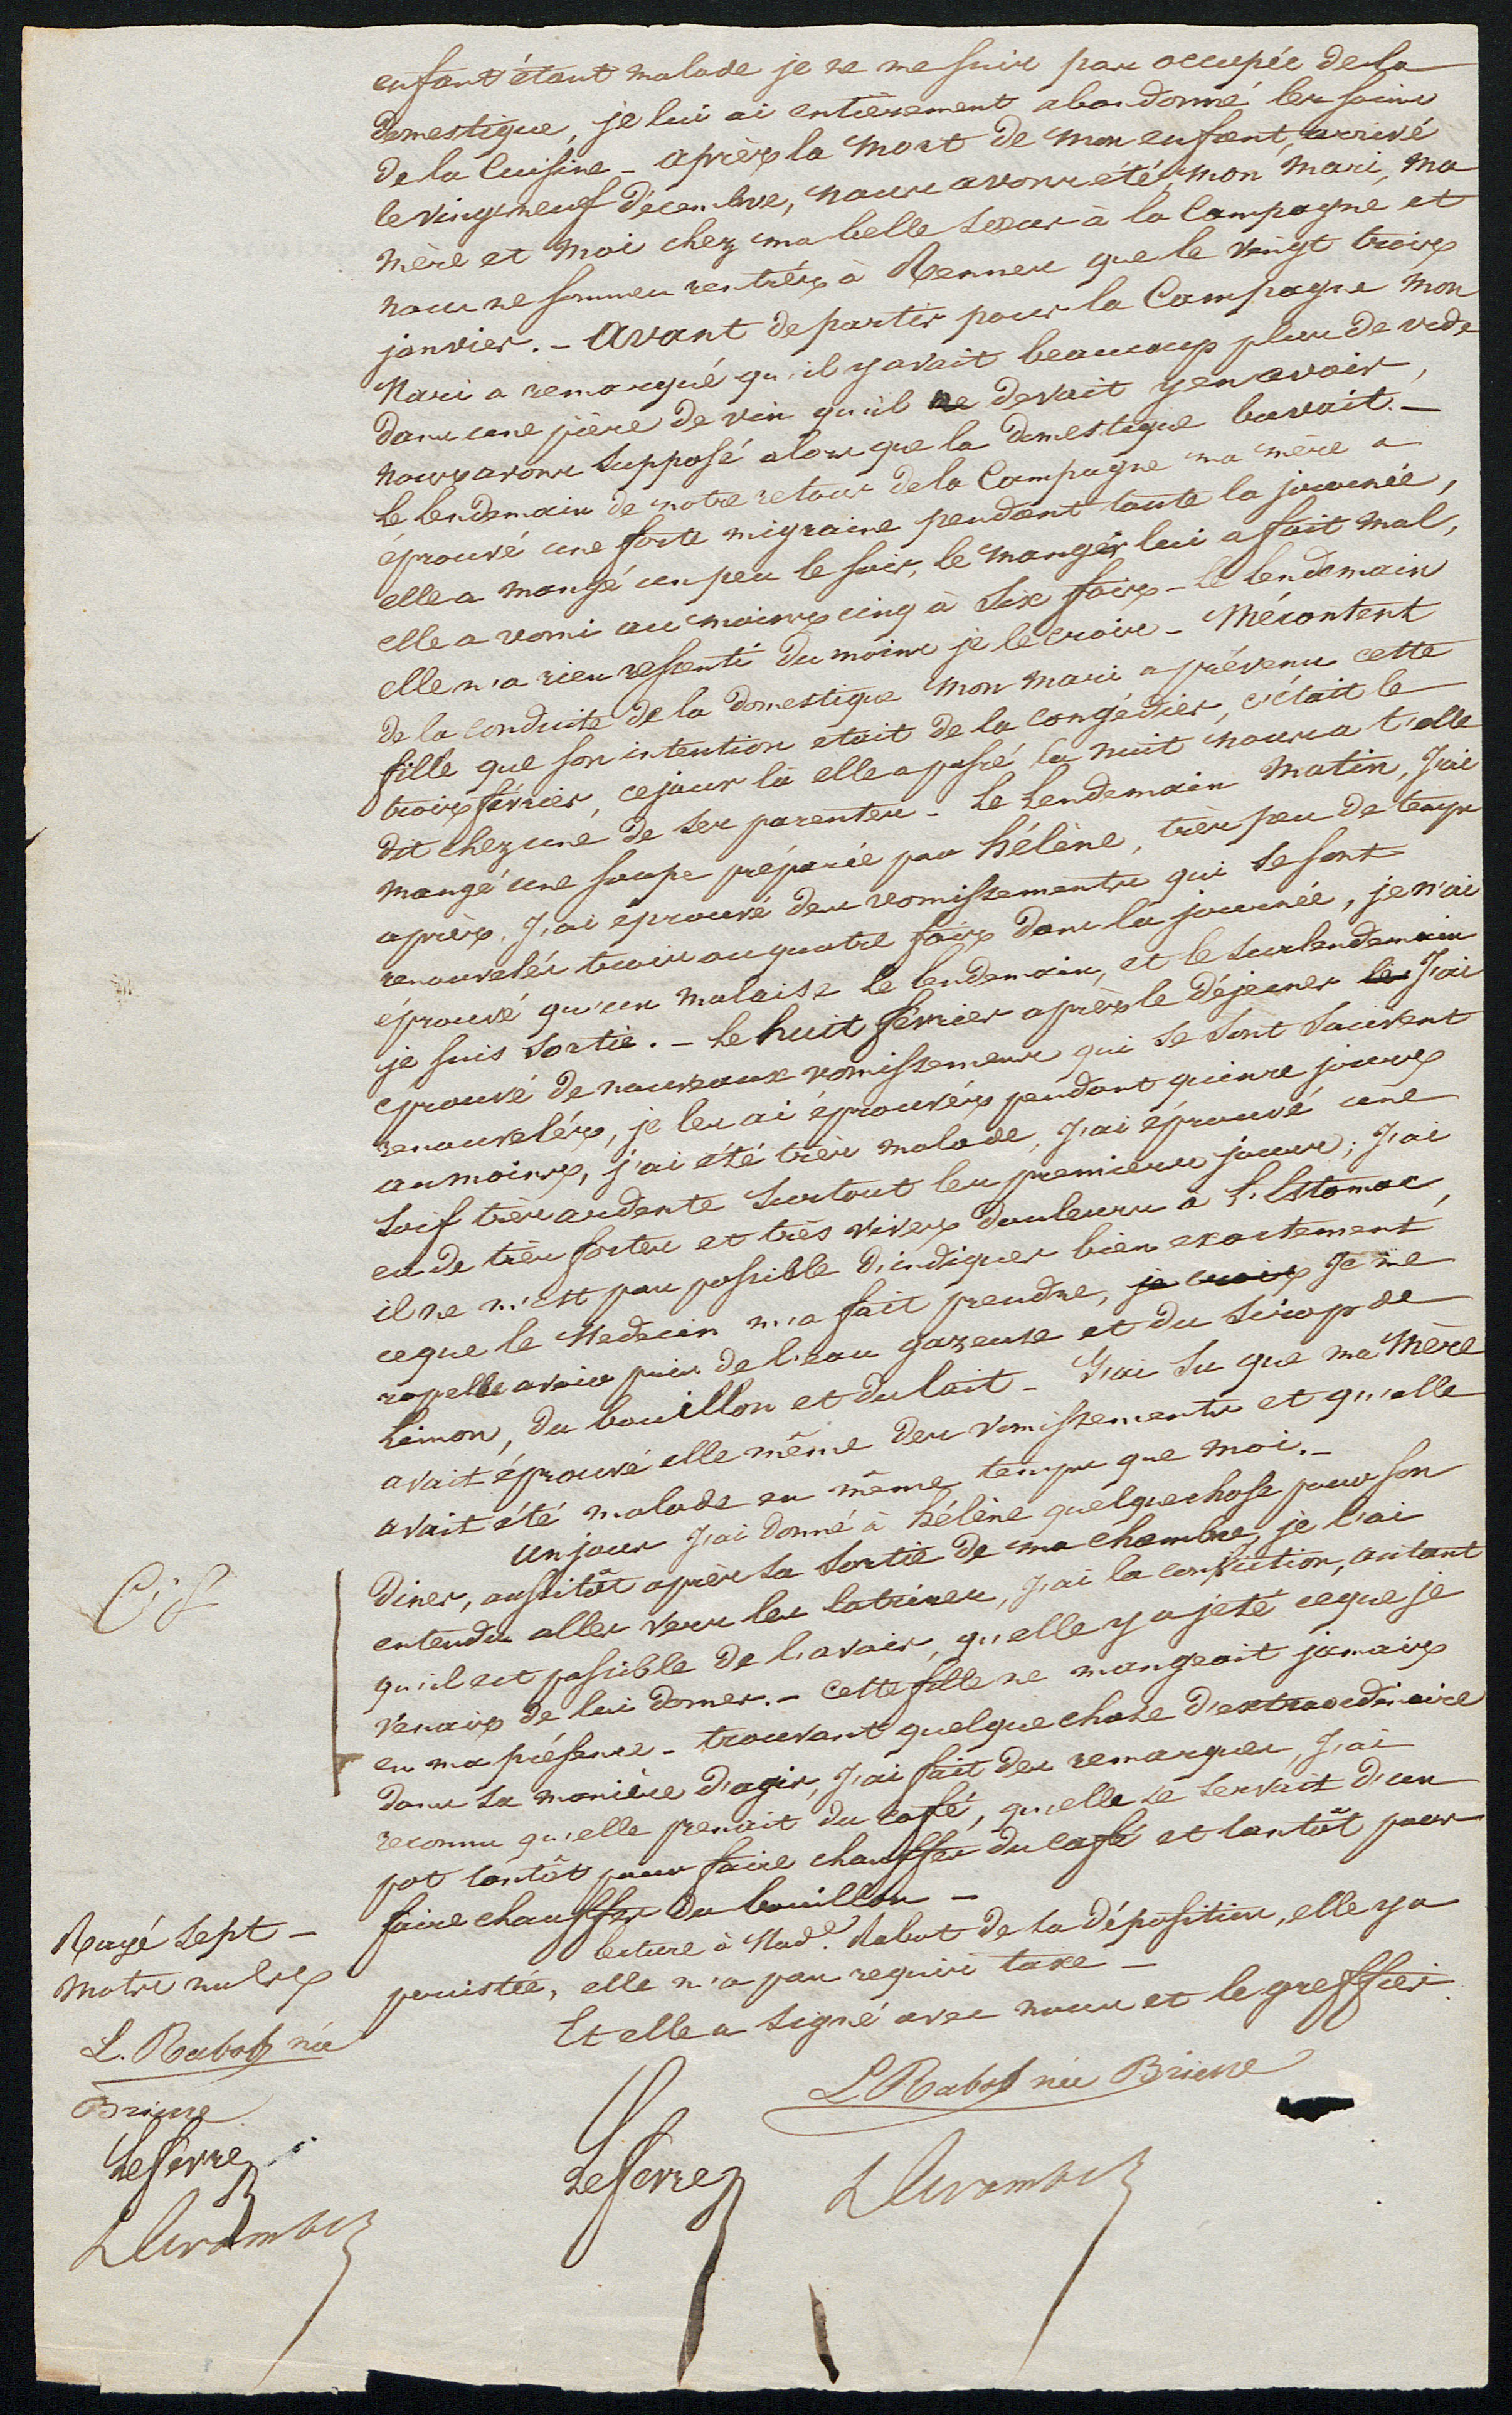 enfant étant malade je ne me suis pas occupée de la
domestique, je lui ai entièrement abandonné les soins
de la Cuisine - après la mort de mon enfant, arrivé
le vingt neuf décembre, nous avons été, mon mari, ma
mère et moi chez ma belle soeur à la Campagne et
nous ne sommes rentrés à Rennes que le vingt trois
janvier. - Avant de partir pour la Campagne mon
Mari a remarqué qu'il y avait beaucoup plus de vide
dans une pièce de vin qu'il ne devait y en avoir,
nous avons supposé alors que la domestique buvait. -
le lendemain de notre retour de la Campagne ma mère a
éprouvé une forte migraine pendant toute la journée,
elle a mangé un peu le soir, le manger lui a fait mal,
elle a vomi au moins cinq à six fois - le lendemain
elle n'a rien ressenti du moins je le crois - Mécontent
de la conduite de la domestique mon mari a prévenu cette
fille que son intention était de la congédier, c'était le
trois février, ce jour là elle a passé la nuit nous a t'elle
dit chez une de ses parentes - Le Lendemain Matin, J'ai
mangé une soupe préparée par hélène, très peu de temps
après, J'ai éprouvé des vomissements qui se sont
renouvelés trois ou quatre fois dans la journée, je n'ai
éprouvé qu'un malaise le lendemain, et le surlendemain
je suis sortie. - Le huit février après le déjeuner le J'ai
éprouvé de nouveaux vomissemens qui se sont souvent
renouvelés, je les ai éprouvés pendant quinze jours
au moins, j'ai été très malade, J'ai éprouvé une
soif très ardente surtout les premiers jours; J'ai
eu de très fortes et très vives douleurs à l'Estomac,
il ne m'est pas possible d'indiquer bien exactement
ce que le Medecin m'a fait prendre, je crois Je me
rapelle avoir pris de l'eau gazeuse et du Sirop de
Limon, du bouillon et du lait - J'ai su que ma Mère
avait éprouvé elle même des vomissements et qu'elle
avait été malade en même temps que moi. -
Un jour J'ai donné à hélène quelque chose pour son
diner, aussitôt après sa sortie de ma chambre, je l'ai
entendu aller vers les latrines, J'ai la conviction, autant
qu'il est possible de l'avoir, qu'elle y a jeté ce que je
venais de lui donner. - Cette fille ne mangeait jamais
en ma présence - trouvant quelque chose d'extraordinaire
dans sa manière d'agir, J'ai fait des remarques, J'ai
reconnu qu'elle prenait du café, qu'elle se servait d'un
pot tantôt pour faire chauffer du café et tantôt pour
faire chauffer du bouillon -
lecture à Mad.e Rabot de sa déposition, elle y a
persistée, elle n'a pas requis taxe -
Et elle a signé avec nous et le greffier.
L Rabot née Brierre
Rayé sept
mots nuls
L. Rabot née
Brierre